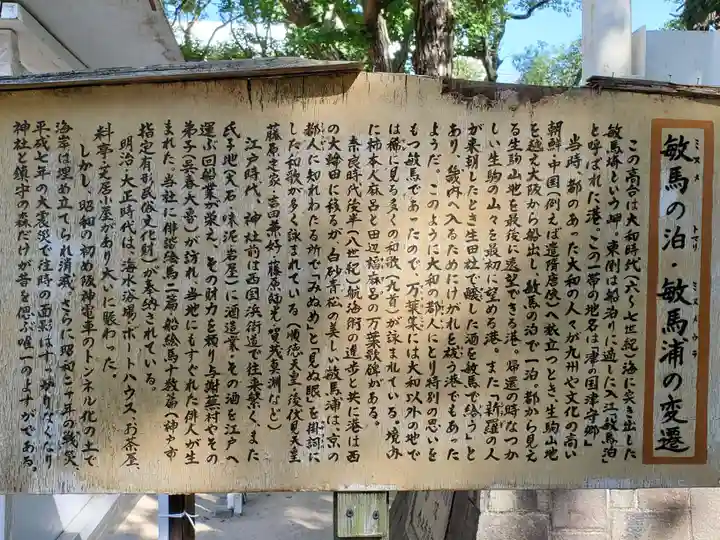 敏馬の泊・敏馬浦の変遷
ミヌメ
トマリ
ミヌメウラ
この高台は大和時代(六~七世紀)海に突き出した
敏馬埼という岬、東側は船泊りに適した入江(敏馬泊)
と呼ばれた港。この一帯の地名は津の国津守郷
当時、都のあった大和の人々が九州や文化の高い
朝鮮・中国(例えば遣隋唐使)へ旅立つとき、生駒山地
を越え大阪から船出し、敏馬の泊で一泊。都から見え
る生駒山地を最後に遠望できる港。帰還の時なつか
しい生駒の山々を最初に望める港。また「新羅の人
が来朝したとき生田社で醸した酒を敏馬で給う」と
あり、畿内へ入るためにけがれを祓う港でもあった
ようだ。このように大和の都人にとり特別の思いを
もつ敏馬であったので、万葉集には大和以外の地で
は稀に見る多くの和歌(九首)が詠まれている。境内
に柿本人麻呂と田辺福麻呂の万葉歌碑がある。
奈良時代後半(八世紀)航海術の進歩と共に港は西
の大輪田に移るが、白砂青松の美しい敏馬浦は、京の
都人に知れわたる所で「みぬめ」と「見ぬ眼」を掛詞に
した和歌が多く詠まれている(順徳天皇・後伏見天皇
藤原定家・吉田兼好・藤原師光・賀茂真渕など)
江戸時代、神社前は西国浜街道で往来繁く、また
氏子地(大石・味泥・岩屋)に酒造業・その酒を江戸へ
運ぶ回船業が栄え、その財力を頼り与謝蕪村やその
弟子(呉春・大魯)が訪れ、当地にもすぐれた俳人が生
まれた。当社に俳諧絵馬二篇・船絵馬十数篇(神戸市
指定有形民俗文化財)が奉納されている。
明治・大正時代は、海水浴場・ボートハウス・お茶屋
料亭・芝居小屋があり大いに賑わった。
しかし、昭和の初め阪神電車のトンネル化の土で
海岸は埋め立てられ消滅、さらに昭和二十年の戦災
平成七年の大震災で往時の面影はすっかりなくなり
神社と鎮守の森だけが昔を偲ぶ唯一のよすがである。